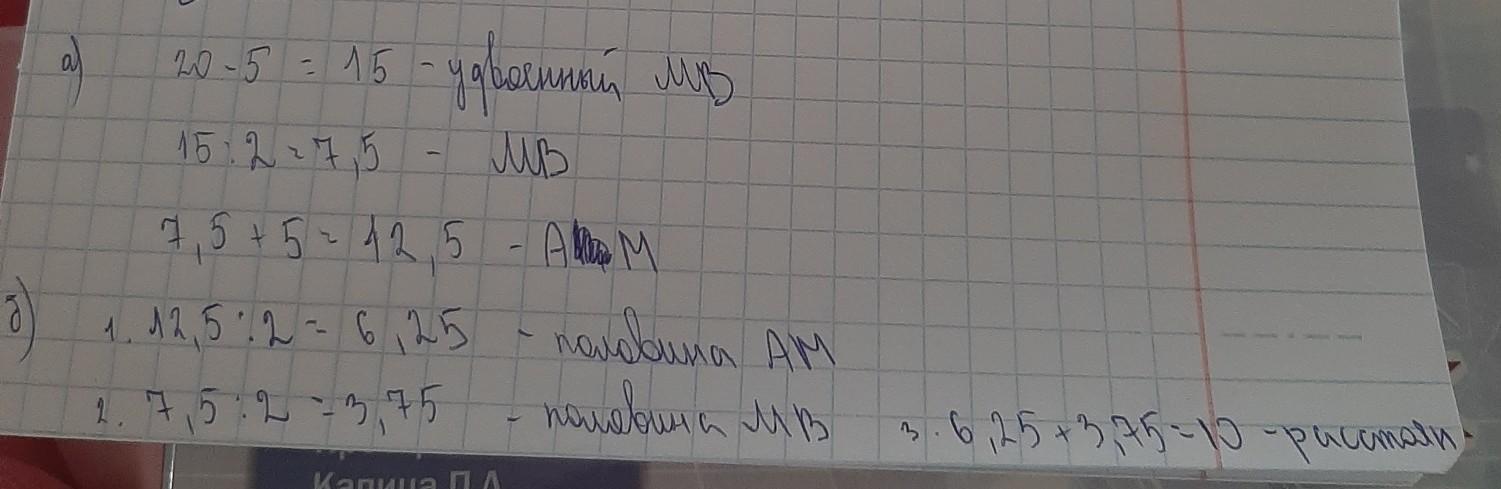 а) 20 - 5 = 15 - удвоенный МВ
15 : 2 = 7,5 - МВ
7,5 + 5 = 12,5 - А М
б) 1. 12,5 : 2 = 6,25 - половина АМ
2. 7,5 : 2 = 3,75 - половина МВ 3. 6,25 + 3,75 = 10 - расстоян
Капица П.Л.